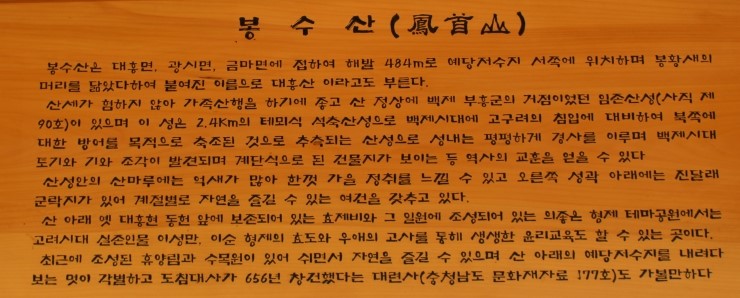 봉수산(鳳首山)
봉수산은 대흥면, 광시면, 금마면에 접하여 해발 484m로 예당저수지 서쪽에 위치하며 봉황새의
머리를 닮았다하여 붙여진 이름으로 대흥산 이라고도 부른다.
산세가 험하지 않아 가족산행을 하기에 좋고 산 정상에 백제 부흥군의 거점이었던 임존산성(사적 제
90호)이 있으며 이 성은 2.4Km의 테뫼식 석축산성으로 백제시대에 고구려의 침입에 대비하여 북쪽에
대한 방어를 목적으로 축조된 것으로 추측되는 산성으로 성내는 평평하게 경사를 이루며 백제시대
토기와 기와 조각이 발견되며 계단식으로 된 건물지가 보이는 등 역사의 교훈을 얻을 수 있다
산성안의 산마루에는 억새가 많아 한껏 가을 정취를 느낄 수 있고 오른쪽 성곽 아래에는 진달래
군락지가 있어 계절별로 자연을 즐길 수 있는 여건을 갖추고 있다.
산 아래 옛 대흥현 동헌 앞에 보존되어 있는 효제비와 그 일원에 조성되어 있는 의좋은 형제 테마공원에서는
고려시대 실존인물 이성만, 이순 형제의 효도와 우애의 고사를 통해 생생한 윤리교육도 할 수 있는 곳이다.
최근에 조성된 휴양림과 수목원이 있어 쉬면서 자연을 즐길 수 있으며 산 아래의 예당저수지를 내려다
보는 멋이 각별하고 도침대사가 656년 창건했다는 대련사(충청남도 문화재자료 177호)도 가볼만하다